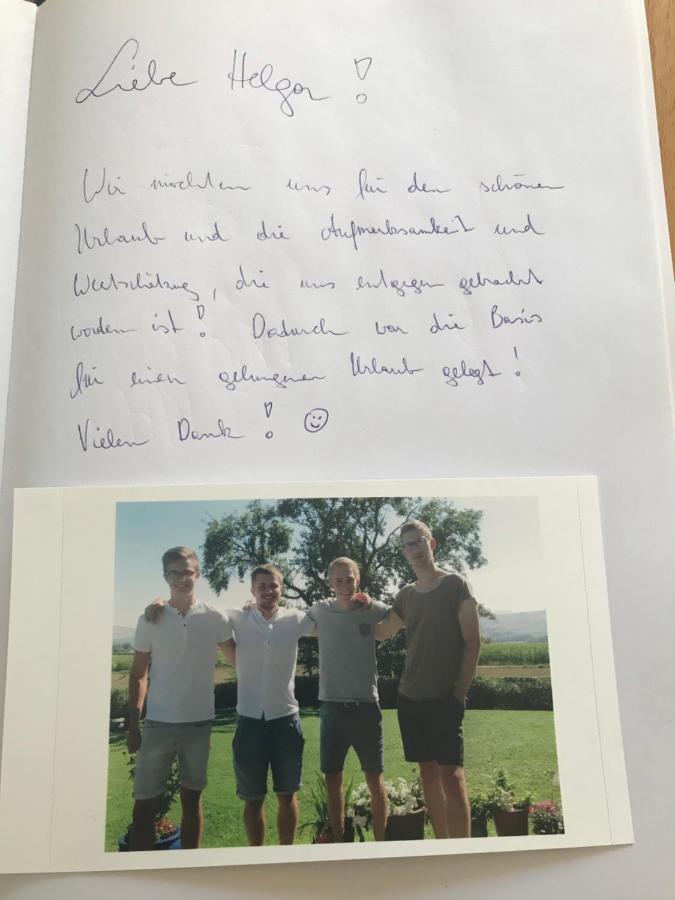 Liebe Helga !
Wir möchten uns für den schönen
Urlaub und die Aufmerksamkeit und
Wertschätzung, die uns entgegen gebracht
worden ist! Dadurch war die Basis
für einen gelungenen Urlaub gelegt!
Vielen Dank! ☺